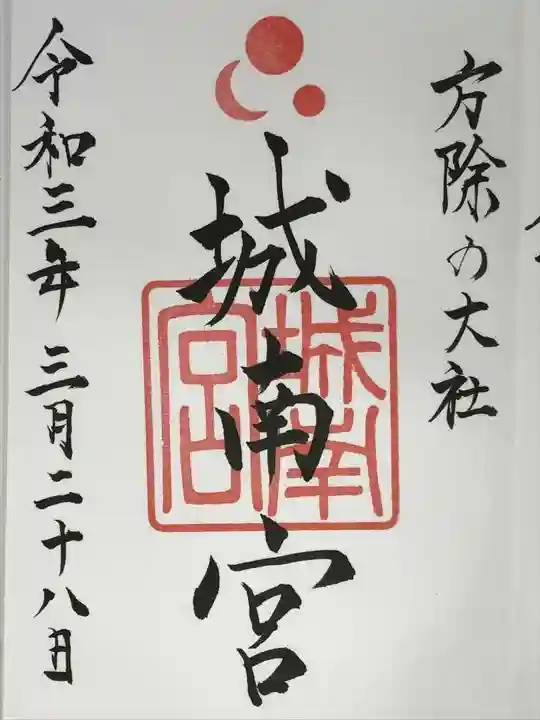 方除の大社
城南宮
城南宮
令和三年三月二十八日